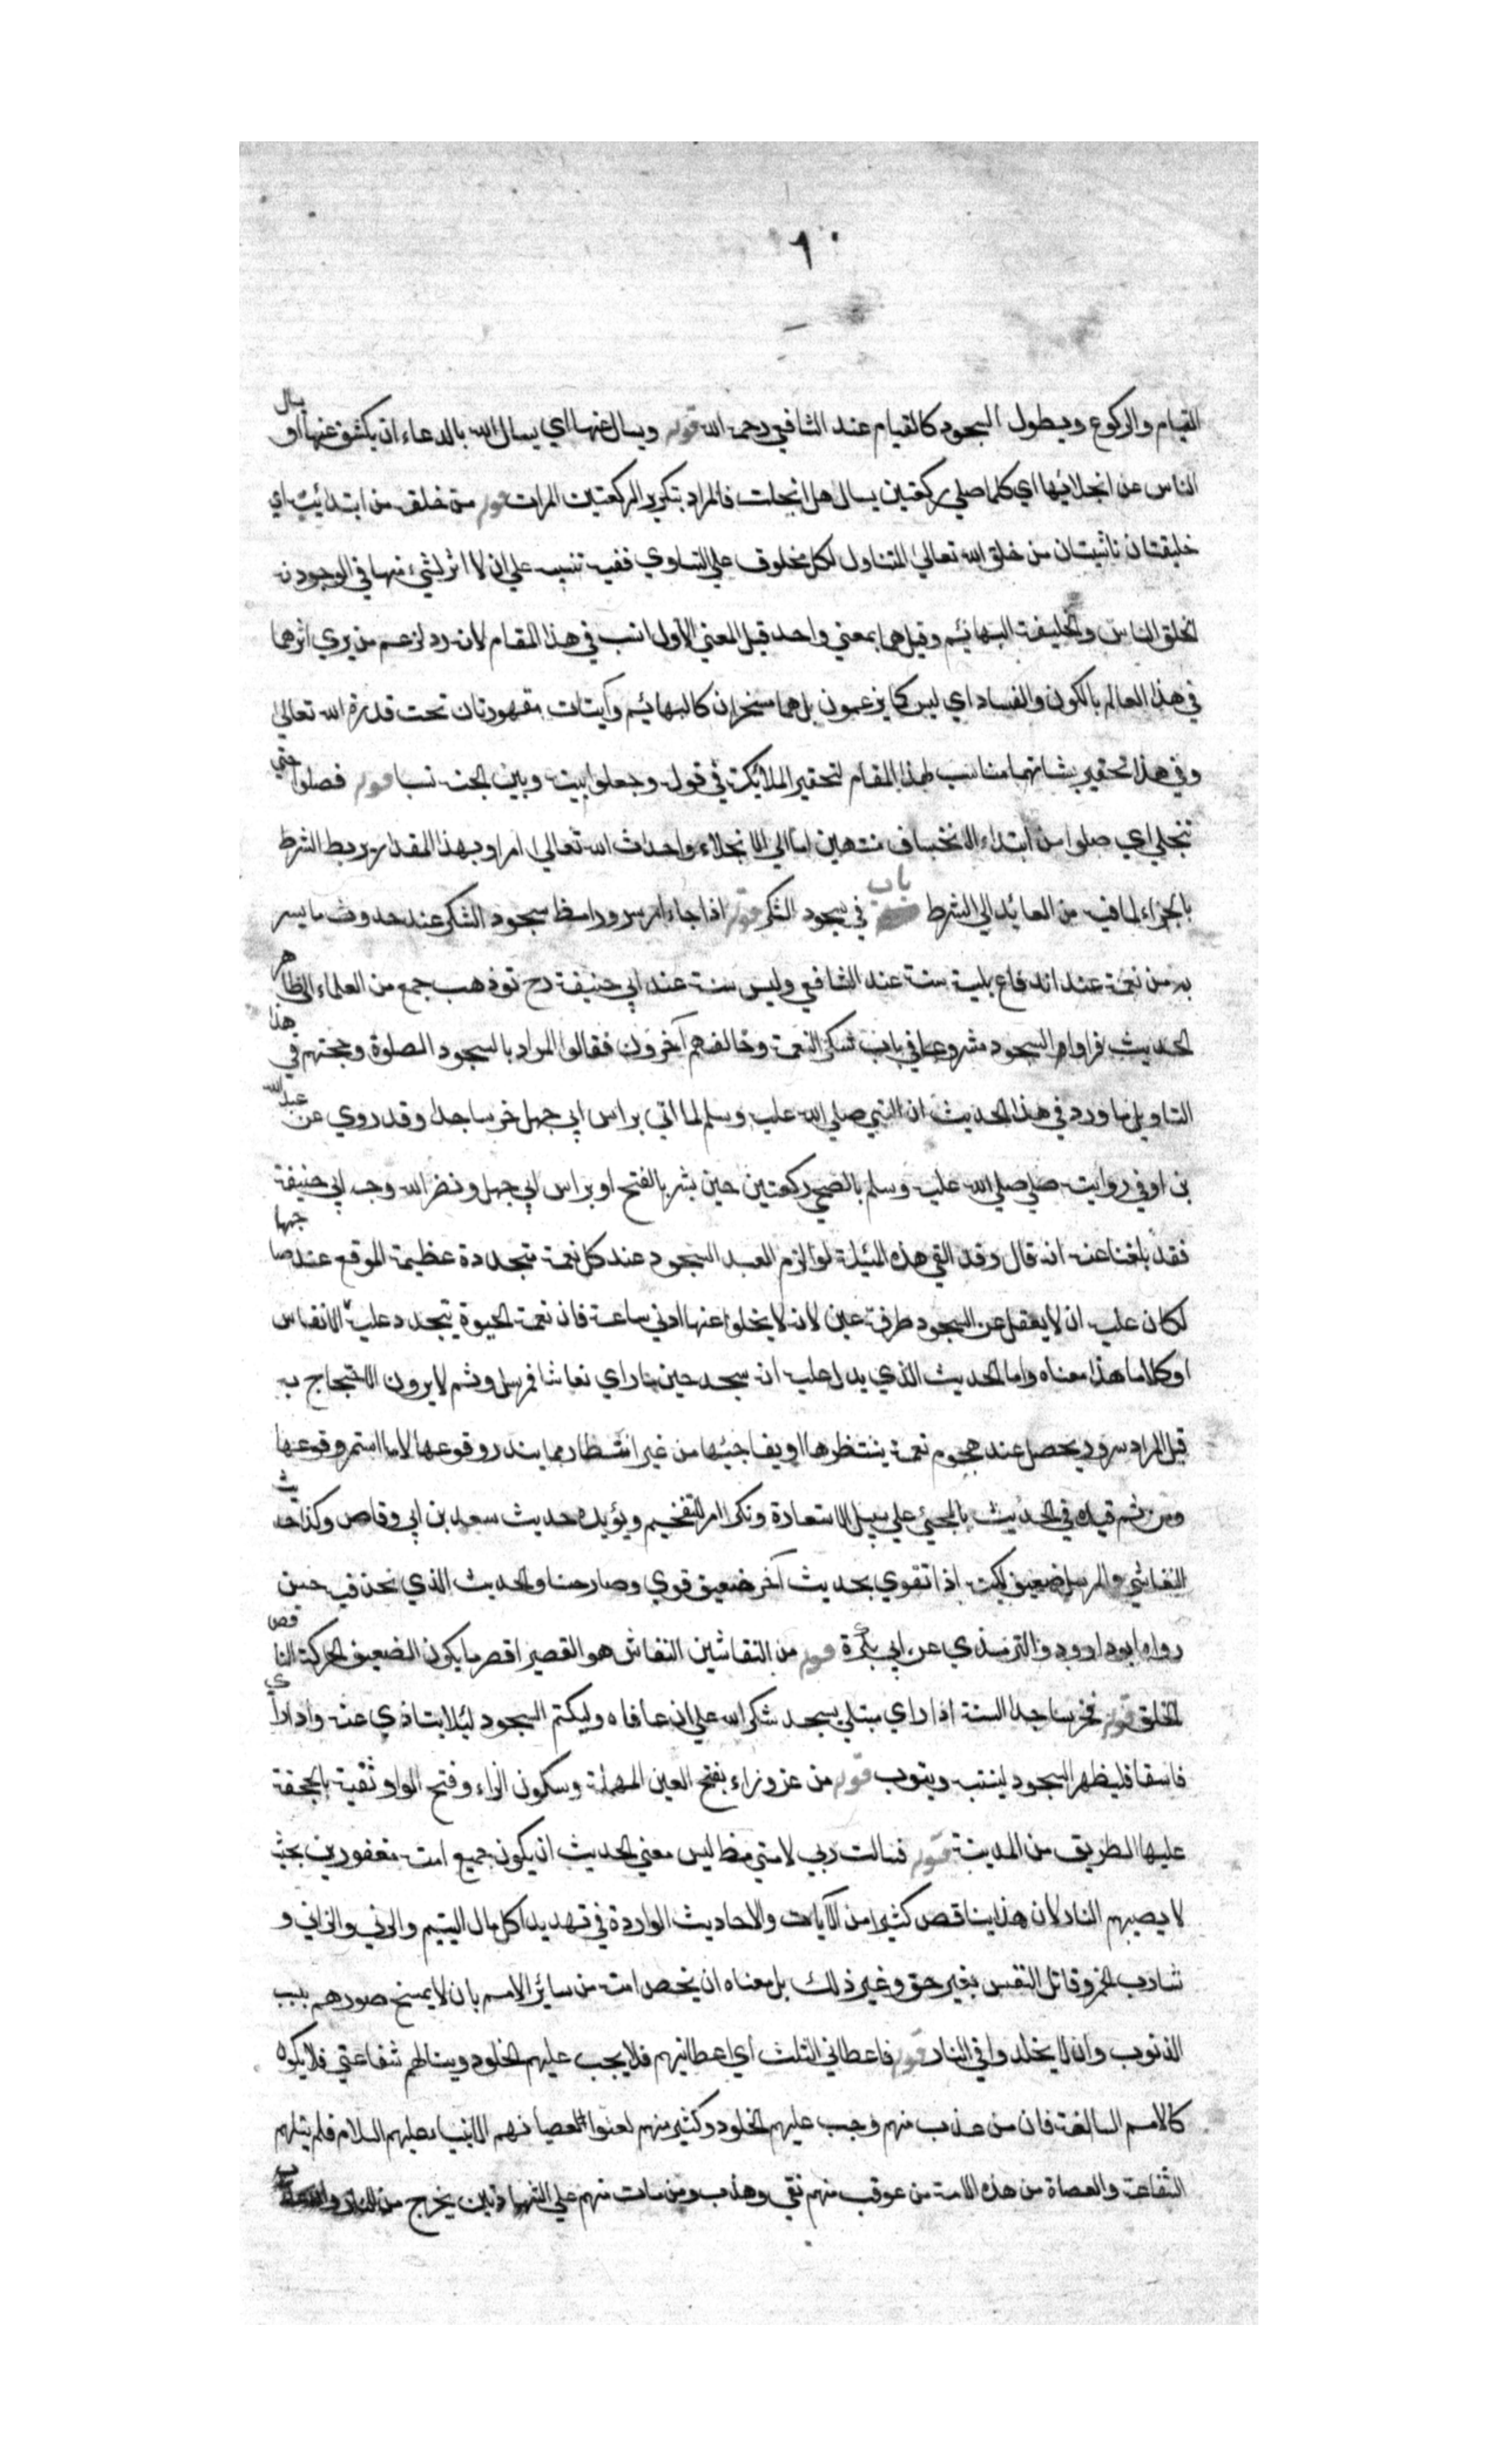 ٦٠
القيام والركوع ويطول السجود كالقيام عند الشافعي رحمه الله قوله ويسال عنها اي يسال الله بالدعاء ان يكشف عنها او يسال
الناس عن انجلائها اي كلما صلي ركعتين يسال هل انجلت فالمراد بتكرير الركعتين المرات قوله من خلقه من ابتدائية اي
خليقتان ناشيتان من خلق الله تعالي المتناول لكل مخلوق علي التساوي ففيه تنبيه علي ان لا اثر لشيء منها في الوجود
الخلق الناس والخليقة البهائم وقيل هما بمعني واحد قيل المعني الاول انسب في هذا المقام لانه رد لزعم من يري اثرهما
في هذا العالم بالكون والفساد اي ليس كما يزعمون بل هما مسخران كالبهائم وآيتان مقهورتان تحت قدرة الله تعالي
وفي هذا تحقير بشانهما مناسب لهذا المقام لتحقير الملائكة في قوله وجعلوا بينه وبين الجنة نسبا قوله فصلوا حتي
تنجلي اي صلوا من ابتداء الانخساف منتهين اما الي الانجلاء واحداث الله تعالي امرا وبهذا المقدار يربط الشرط
بالجزاء لما فيه من العايد الي الشرط باب في سجود الشكر قوله اذا جاءه امر سرور سجود الشكر عند حدوث ما يسر
به من نعمة عند اندفاع بلية سنة عند الشافعي وليس سنة عند ابي حنيفة رح ذهب جمع من العلماء الي ظاهر
الحديث فراوا السجود مشروعا في باب شكر النعمة وخالفهم آخرون فقالوا المراد بالسجود الصلوة وحجتهم في هذا
التاويل ما ورد في هذا الحديث ان النبي صلي الله عليه وسلم لما اتي براس ابي جهل خر ساجدا وقد روي عن عبد الله
بن اوفي روايت صلي صلي الله عليه وسلم بالضحي ركعتين حين بشر بالفتح او براس ابي جهل ونضر الله وجه ابي حنيفة
فقد بلغنا عنه انه قال وقد القي هذه المسئلة لو الزم العبد السجود عند كل نعمة متجددة عظيمة الموقع عند صاحبها
لكان عليه ان لا يغفل عن السجود طرفة عين لانه لا يخلو عنها ادني ساعة فان نعمة الحيوة يتجدد عليه الانفاس
او كلاما هذا معناه واما الحديث الذي يدل عليه انه سجد حين راي نغاشا فمرسل وهم لا يرون الاحتجاج به
قيل المراد سرور يحصل عند هجوم نعمة ينتظرها او يفاجئها من غير انتظار مما يندر وقوعها لا ما استمر وقوعها
ومن ثم قيده في الحديث بالمجيء علي سبيل الاستعارة ونكر امر للتفخيم ويؤيده حديث سعد بن ابي وقاص وكذا حديث
النغاشي والمرسل ضعيف لكنه اذا تقوي بحديث آخر ضعيف قوي وصار حسنا والحديث الذي نحن فيه حسن
رواه ابو داود والترمذي عن ابي بكرة قوله من النغاشين النغاش هو القصير اقصر ما يكون الضعيف الحركة الناقص
الخلق قوله فخر ساجدا السنة اذا راي مبتلي يسجد شكرا لله علي ان عافاه وليكتم السجود ليلا يتاذي عنه واذا راي
فاسقا فليظهر السجود لينتبه ويتوب قوله من عزوزاء بفتح العين المهملة وسكون الزاء وفتح الواو ثنية بالجحفة
عليها الطريق من المدينة قوله فسالت ربي لامتي ليس معني الحديث ان يكون جميع امته مغفورين بحيث
لا يصيبهم النار لان هذا يناقض كثيرا من الآيات والاحاديث الواردة في تهديد اكل مال اليتيم والزاني و
شارب الخمر وقاتل النفس بغير حق وغير ذلك بل معناه ان يخص امته من سائر الامم بان لا يمسخ صورهم بسبب
الذنوب وان لا يخلدوا في النار قوله فاعطاني الثلث اي اعطانيهم فلا يجب عليهم الخلود وينالهم شفاعتي فلا يكونوا
كالامم السالفة فان من عذب منهم وجب عليهم الخلود وكثير منهم لعنوا لعصيانهم الانبياء عليهم السلام فلم ينلهم
الشفاعة والعصاة من هذه الامة من عوقب منهم نقي وهذب ومن مات منهم علي الشهادتين يخرج من النار